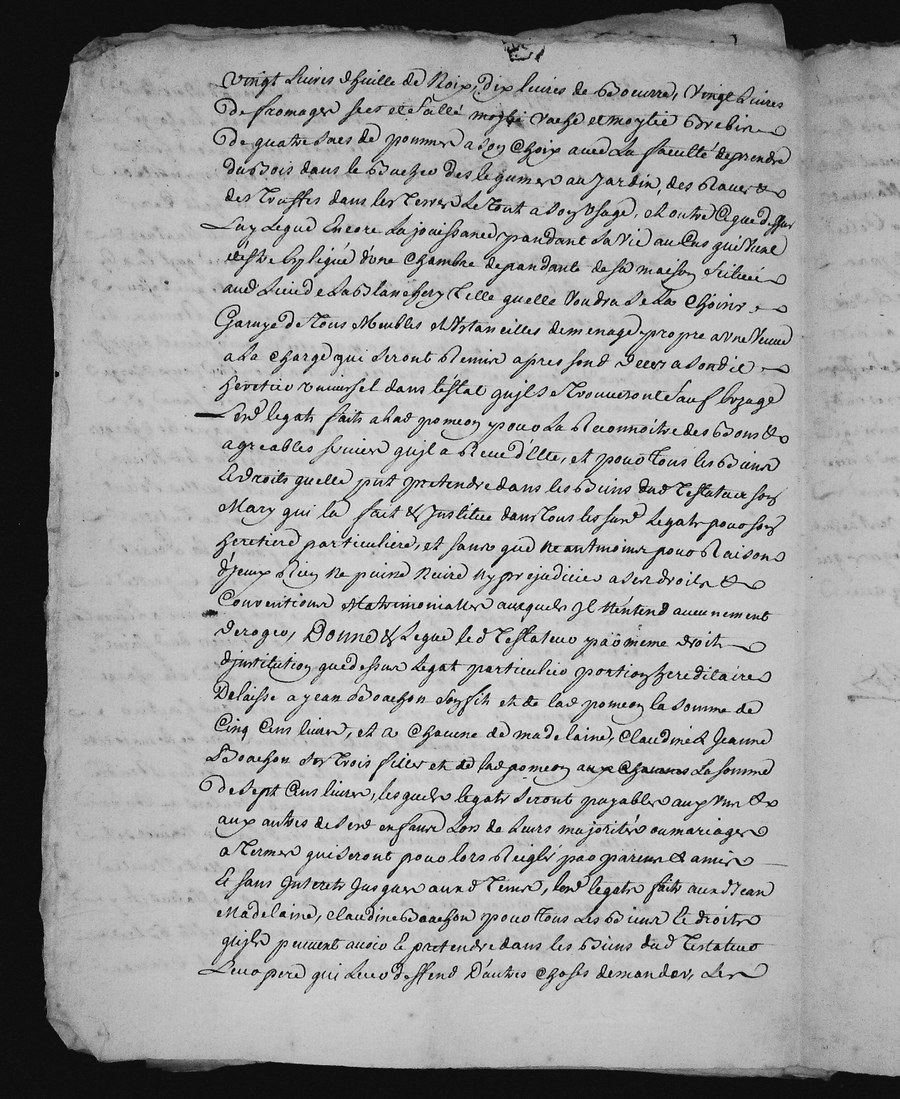 vingt Livres dhuille de Noix, dix livres de Beurre, Vingt Livres
de fromages secs et sallé moytié vache et moytié Brebis
de quatre sacs de pommes a son Choix avec La faculté deprendre
du Bois dans le Bucher des legumes au Jardin des Raves &
des Truffes dans les Terres Le Tout a son usage, et outre ce que dessus
Luy legue Encore La jouissance pandant sa vie au Cas
d'une Chambre depandante de sa maison Scituée
aud Lieu de La Blanchery Telle quelle voudra Se La Choisir
Garnye de Tous Meubles et Ustancilles de menage propre a une veuve
a La charge qui seront Remis apres sond deces a sondit
heretier universel dans l'estat quils se trouveront sauf luzage
Lesd legats faits a lad pomeon pour La Reconnoitre des Bons &
agreables services quil a Receu d'Elle, et pour Tous les Biens
Et droits quelle put pretendre dans les Biens dud Testateur son
Mary qui la fait & Institue dans Tous les susd Legats pour son
heretiere particuliere, et sans que neantmoins pour Raison
d'jceux Rien ne puisse Nuire ny prejudicier a ses droits &
Conventions Matrimonialles auxquels Jl N'entend aucunement
deroger, Donne & Legue led Testateur par meme droit
d'jnstitution que dessus legat particulier portion hereditaire
Delaisse a jean Boachon son fils et de lad pomeon la somme de
Cinq Cens livres, et a Chacune de madelaine, Claudine & Jeanne
Boachon ses Trois filles et de lad pomeon aux Chacunes La somme
de sept Cens livres, lesquels legats seront payables aux uns &
aux autres de sesd enfans Lors de Leurs majorités ou mariages
a Termes qui seront pour lors Reiglé par parens & amis
Et sans Interets Jusques auxd Termes, lesd legats faits auxd Jean
Madelaine, Claudine Boachon pour Tous Les Biens & droits
quils peuvent avoir & pretendre dans les Biens dud Testateur
Leur pere qui Leur deffend D'autres Choses demander, Les